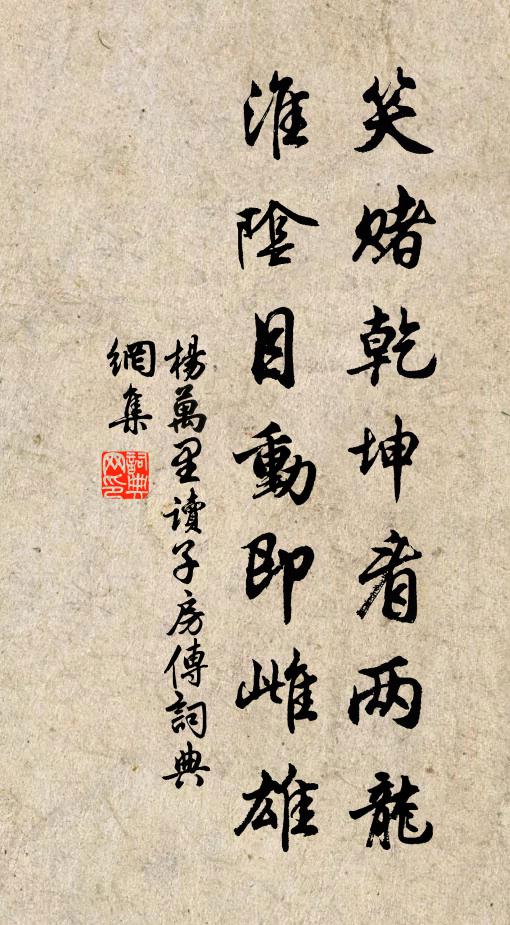 笑賭乾坤看两龍
淮陰目動即雌雄
楊萬里讀子房傳詞典
網集
詞典
网印